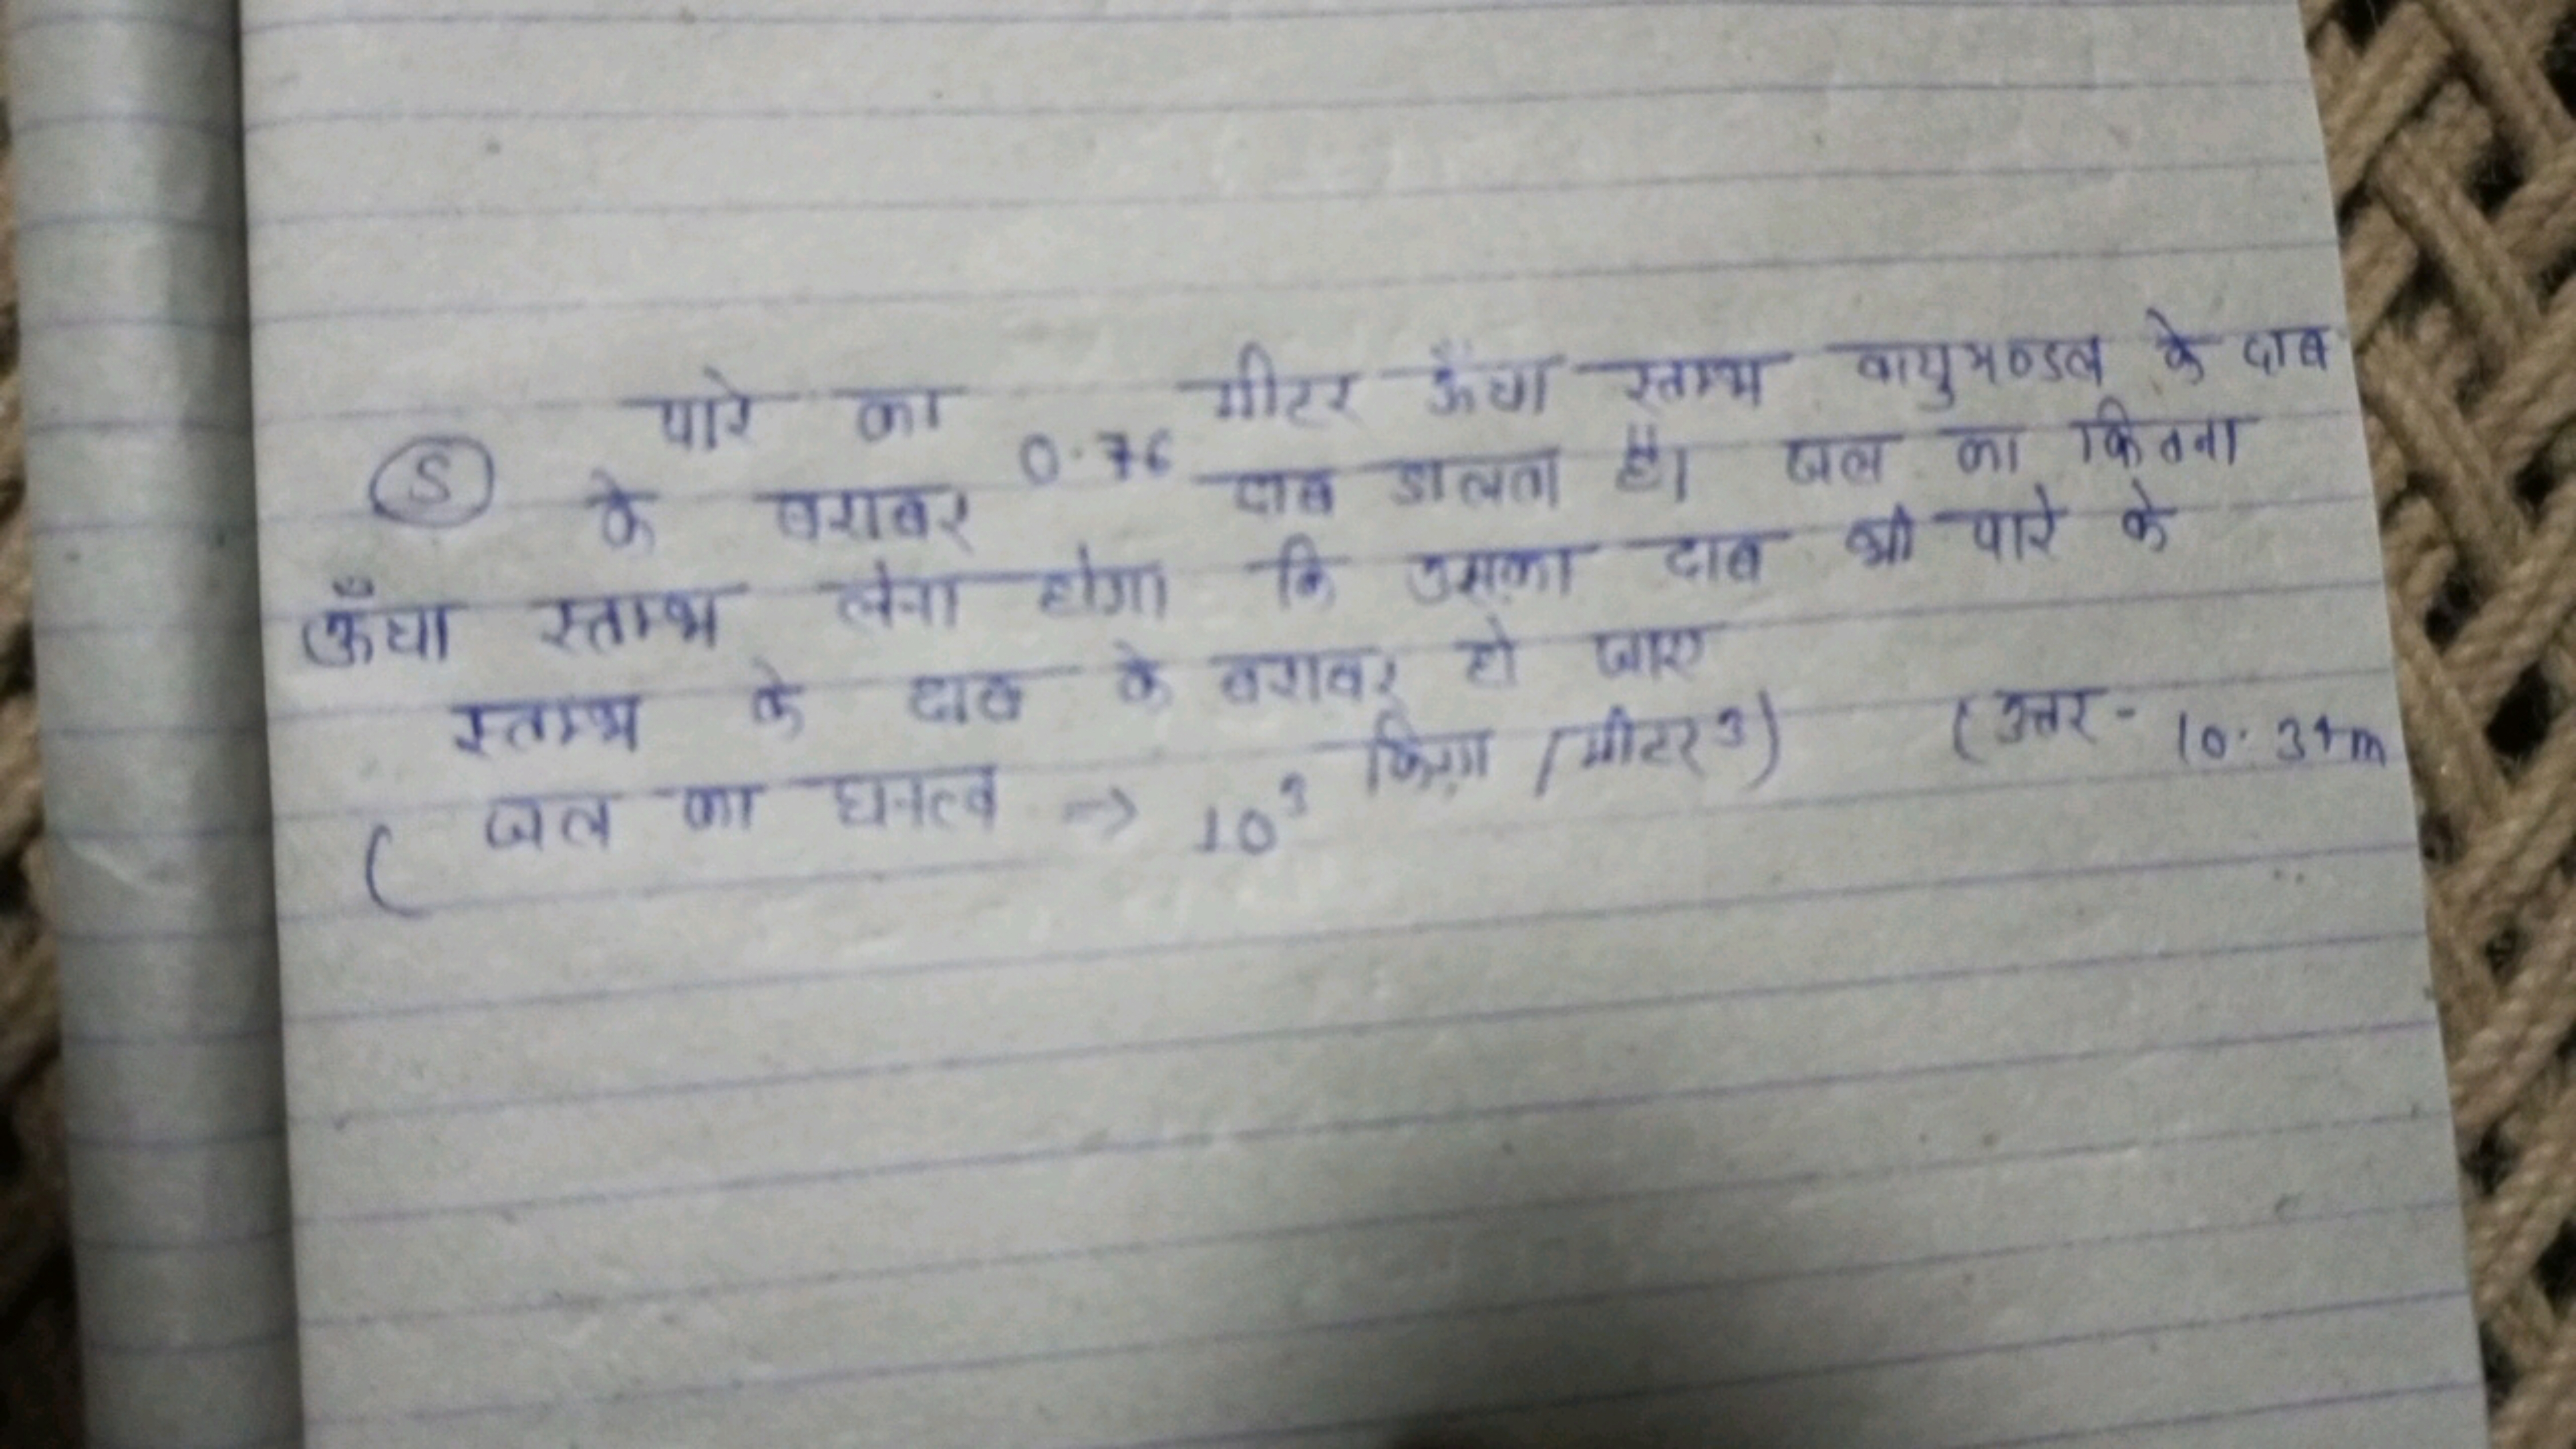 (5) पारे का 0.76 मीटर ऊँचा स्तम्भ वायुमण्डल के दाब
के बराबर दाब डालता है। जल का कितना
ऊँचा स्तम्भ लेना होगा कि उसका दाब भी पारे के
स्तम्भ के दाब के बराबर हो जाए
( जल का घनत्व => 10³ किग्रा / मीटर³) (उत्तर - 10.34m